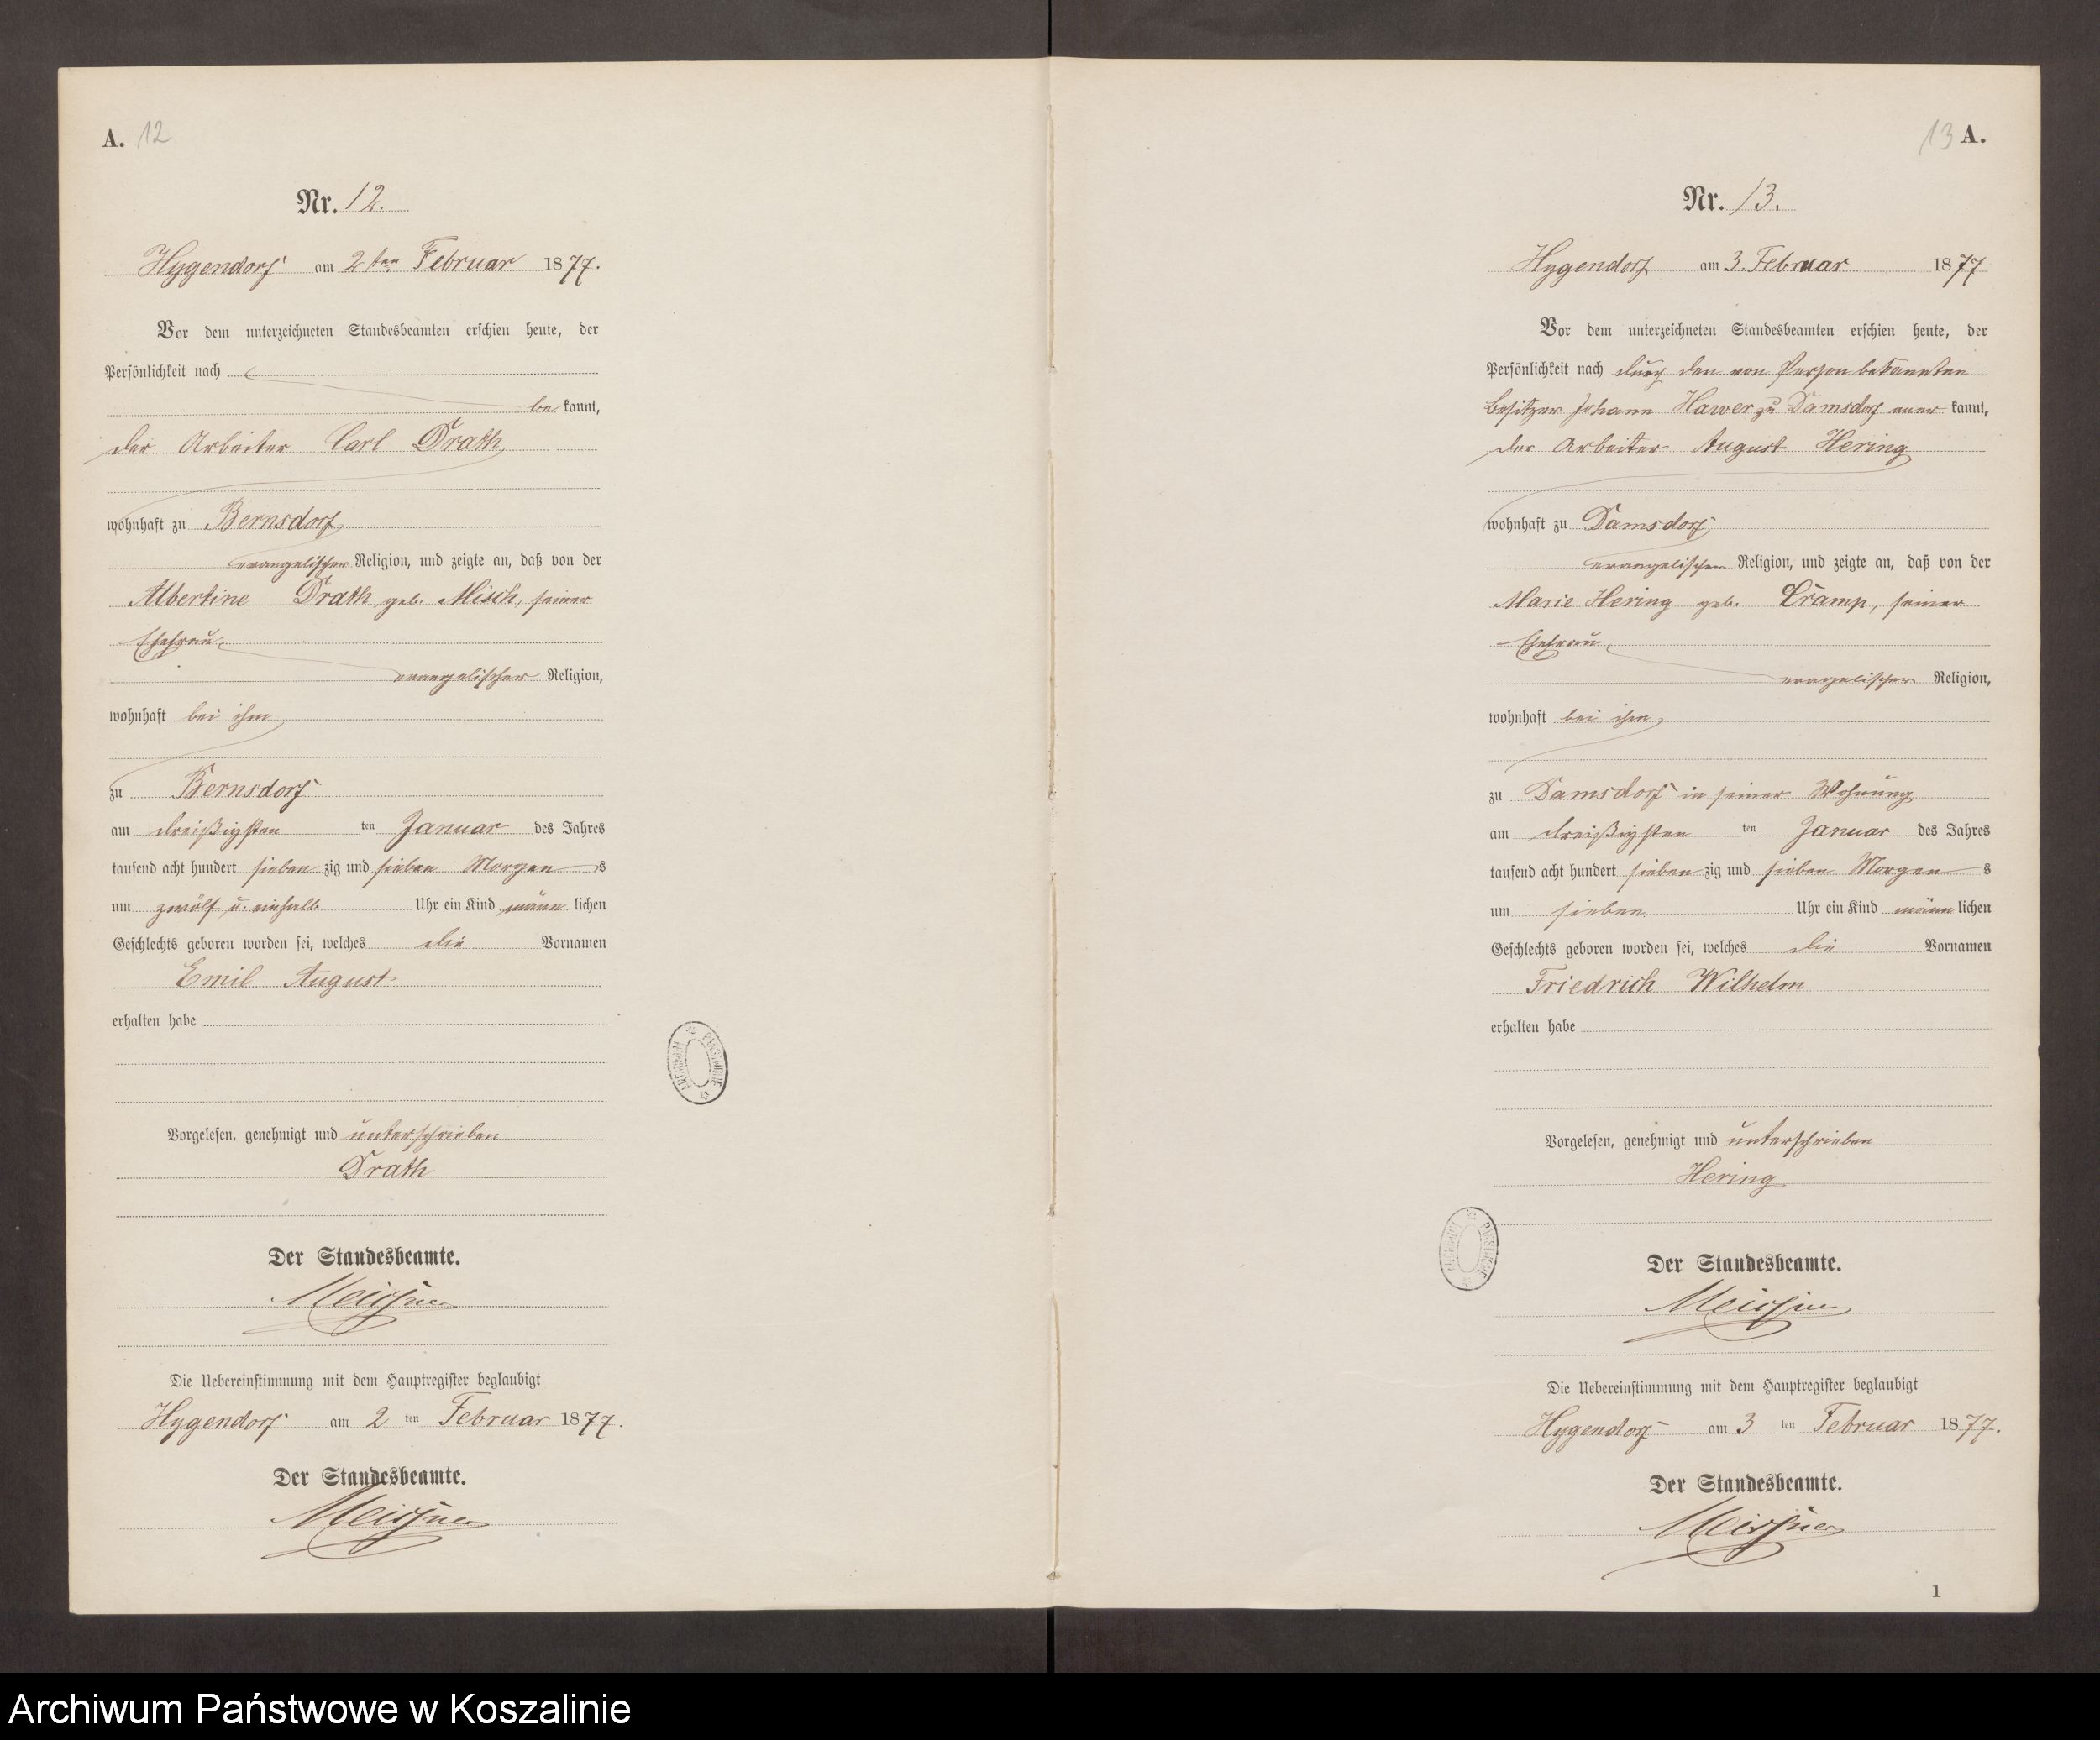 A. 12
Nr. 12.
Hygendorf am 2ten Februar 1877.
Vor dem unterzeichneten Standesbeamten erschien heute, der
Persönlichkeit nach
be kannt,
der Arbeiter Carl Drath,
wohnhaft zu Bernsdorf,
evangelischer Religion, und zeigte an, daß von der
Albertine Drath geb. Misch, seiner
Ehefrau,
evangelischer Religion,
wohnhaft bei ihm,
zu Bernsdorf
am dreißigsten ten Januar des Jahres
tausend acht hundert sieben zig und sieben Morgen s
um zwölf u. einhalb Uhr ein Kind männ lichen
Geschlechts geboren worden sei, welches die Vornamen
Emil August
erhalten habe
Vorgelesen, genehmigt und unterschrieben
Drath
Der Standesbeamte.
Meissner
Die Uebereinstimmung mit dem Hauptregister beglaubigt
Hygendorf am 2 ten Februar 1877.
Der Standesbeamte.
Meissner
13 A.
Nr. 13.
Hygendorf am 3. Februar 1877
Vor dem unterzeichneten Standesbeamten erschien heute, der
Persönlichkeit nach durch den von Person bekannten
Besitzer Johann Hawer zu Damsdorf aner kannt,
der Arbeiter August Hering
wohnhaft zu Damsdorf,
evangelischer Religion, und zeigte an, daß von der
Marie Hering geb. Cramp, seiner
Ehefrau,
evangelischer Religion,
wohnhaft bei ihm,
zu Damsdorf in seiner Wohnung
am dreißigsten ten Januar des Jahres
tausend acht hundert sieben zig und sieben Morgen s
um sieben Uhr ein Kind männ lichen
Geschlechts geboren worden sei, welches die Vornamen
Friedrich Wilhelm
erhalten habe
Vorgelesen, genehmigt und unterschrieben
Hering
Der Standesbeamte.
Meissner
Die Uebereinstimmung mit dem Hauptregister beglaubigt
Hygendorf am 3 ten Februar 1877.
Der Standesbeamte.
Meissner
1
Archiwum Państwowe w Koszalinie